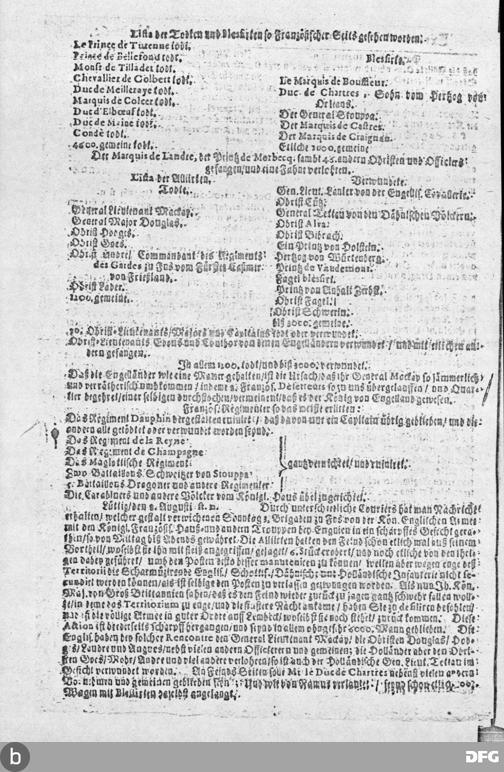 Lista der Todten und Blessirten so Französischer Seits gesehen worden:
Le Prince de Turenne todt.
Prince de Bellefond todt.
Mons. de Tilladet todt.
Chevallier de Colbert todt.
Duc de Meilleraye todt.
Marquis de Colcer todt.
Duc d'Elboeuf todt.
Duc de Maine todt.
Condé todt.
4600. gemeine todt.
Blessirte.
Le Marquis de Bouffleur.
Duc de Chartres, Sohn vom Hertzog von
Orleans.
Der General Stouppa.
Der Marquis de Castres.
Der Marquis de Craignan.
Etliche 1000. gemeine
Der Marquis de Landre, der Printz de Morbecq, sambt 45. andern Obristen und Officiers
gefangen, und eine Fahne verlohren.
Lista der Alliirten,
Todte.
General Lieutenant Mackay.
General Major Douglas.
Obrist Hodges.
Obrist Goes.
Obrist Andre, Commandant des Regiments
des Gardes zu Fus vom Fürsten Casimir
von Frießland.
Obrist Lader.
1100. gemeine.
Verwundete.
Gen. Lieut. Lanier von der Englis. Cavallerie.
Obrist Cütz.
General Tettau von den Dähnischen Völckern.
Obrist Alva.
Obrist Bibrach.
Ein Printz von Holstein.
Hertzog von Würtenberg.
Printz de Vaudemont.
Fagel blessirt.
Printz von Anhalt Zerbst.
Obrist Fagel.
Obrist Schwerin.
bis 2000. gemeine.
30. Obrist-Lieutenants, Majors und Capitains todt oder verwundet.
Obrist-Lieutenant Evens und Couthor von denen Engelländern verwundet, und mit etlichen an-
dern gefangen.
In allem 1100. todt, und bis 2000. verwundet.
Daß die Engelländer wie eine Mauer gehalten, ist die Ursach, daß ihr General Mackay so jämmerlich
und verrätherisch umbkommen, indeme 2. Französ. Deserteurs
Französ: Regimenter so das meiste erlitten:
Das Regiment Dauphin dergestalten ruinirt, daß davon nur ein Capitain übrig geblieben, und die
andern alle getödtet oder verwundet worden seynd.
Das Regiment de la Reyne
Das Regiment de Champagne
Das Maglotische Regiment
Zwo Battaillons Schweitzer von Stouppa
5. Battaillons Dragoner und andere Regimenter
gantz vernichtet, und ruinirt.
Die Carabiners und andere Völcker vom Königl. Haus übel zugerichtet.
Lüttig, den 8. Augusti st. n. Durch unterschiedliche Couriers hat man Nachricht
erhalten, welcher gestalt verwichenen Sonntag 5. Brigaden zu Fus von der Kön. Englischen Armee
mit den Königl. Französis. Haus und andern Trouppen bey Enguien in ein scharffes Gefecht gera-
then, so von Mittag bis Abends gewähret. Die Alliirten haben den Feind schon etlich mal
Vortheil, woselbst sie ihn mit fleiß angegriffen, gejaget, 6. Stück erobert, und noch etliche von den ihri-
gen dabey geführet, umb den Posten desto besser manuteniren zu können, weilen aber wegen enge deß
Territorii die Scharmützirende Englis. Schottis. Dähnisch: und Holländische Infanterie nicht se-
cundirt werden können, als ist selbige den Posten zu verlassen gezwungen worden. Als nun Ih. Kön.
Maj. von Groß Brittannien sahen, daß es den Feind wieder zurück zu jagen gantz schwehr fallen woll-
te, in deme das Territorium zu enge, und die finstere Nacht ankame, haben Sie zu defiliren befohlen,
Diese
Action ist beederseits scharpff hergangen, und seynd in allem über 5000. Mann geblieben. Die
Englis. haben bey solcher Rencontre den General Lieutenant Mackay, die Obristen Douglas, Hod-
ges, Landre und Angus, nebst vielen andern Officierern und gemeinen; die Holländer aber den Obri-
sten Goes, Mohr, Andre und viel andere verlohren, so ist auch der Holländische Gen. Lieut. Tettau im
Gesicht verwundet worden. An Feinds Seiten solle Mr. le Duc de Chartres nebenst vielen andern
Vornehmen und gemeinen geblieben seyn: Und wie von Namur verlautet, seynd schon etlich 100.
Wagen mit Blessirten daselbst angelangt.
b
DFG